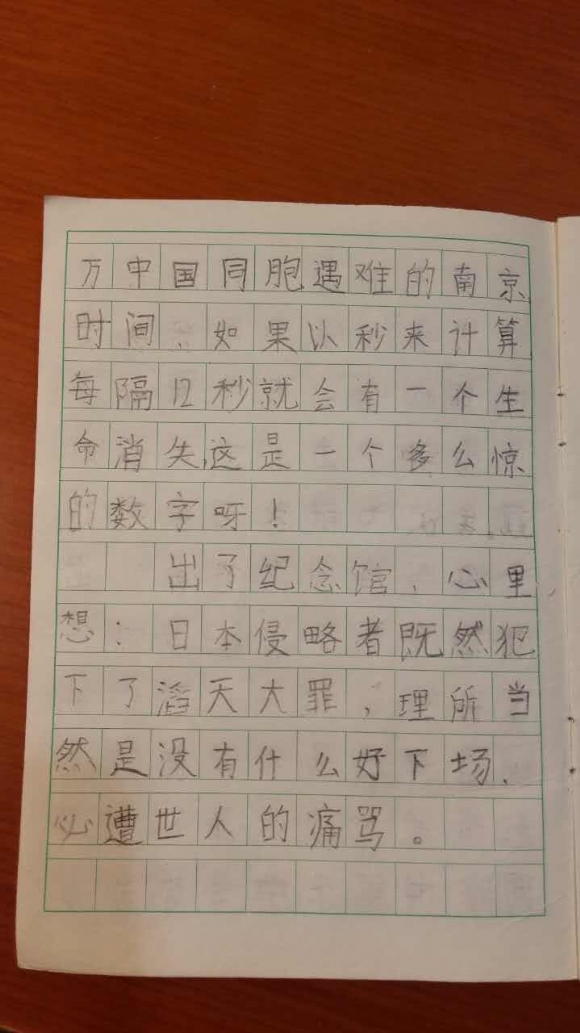 万中国同胞遇难的南京
时间，如果以秒来计算
每隔12秒就会有一个生
命消失，这是一个多么惊
的数字呀！
出了纪念馆，心里
想：日本侵略者既然犯
下了滔天大罪，理所当
然是没有什么好下场，
心遭世人的痛骂。